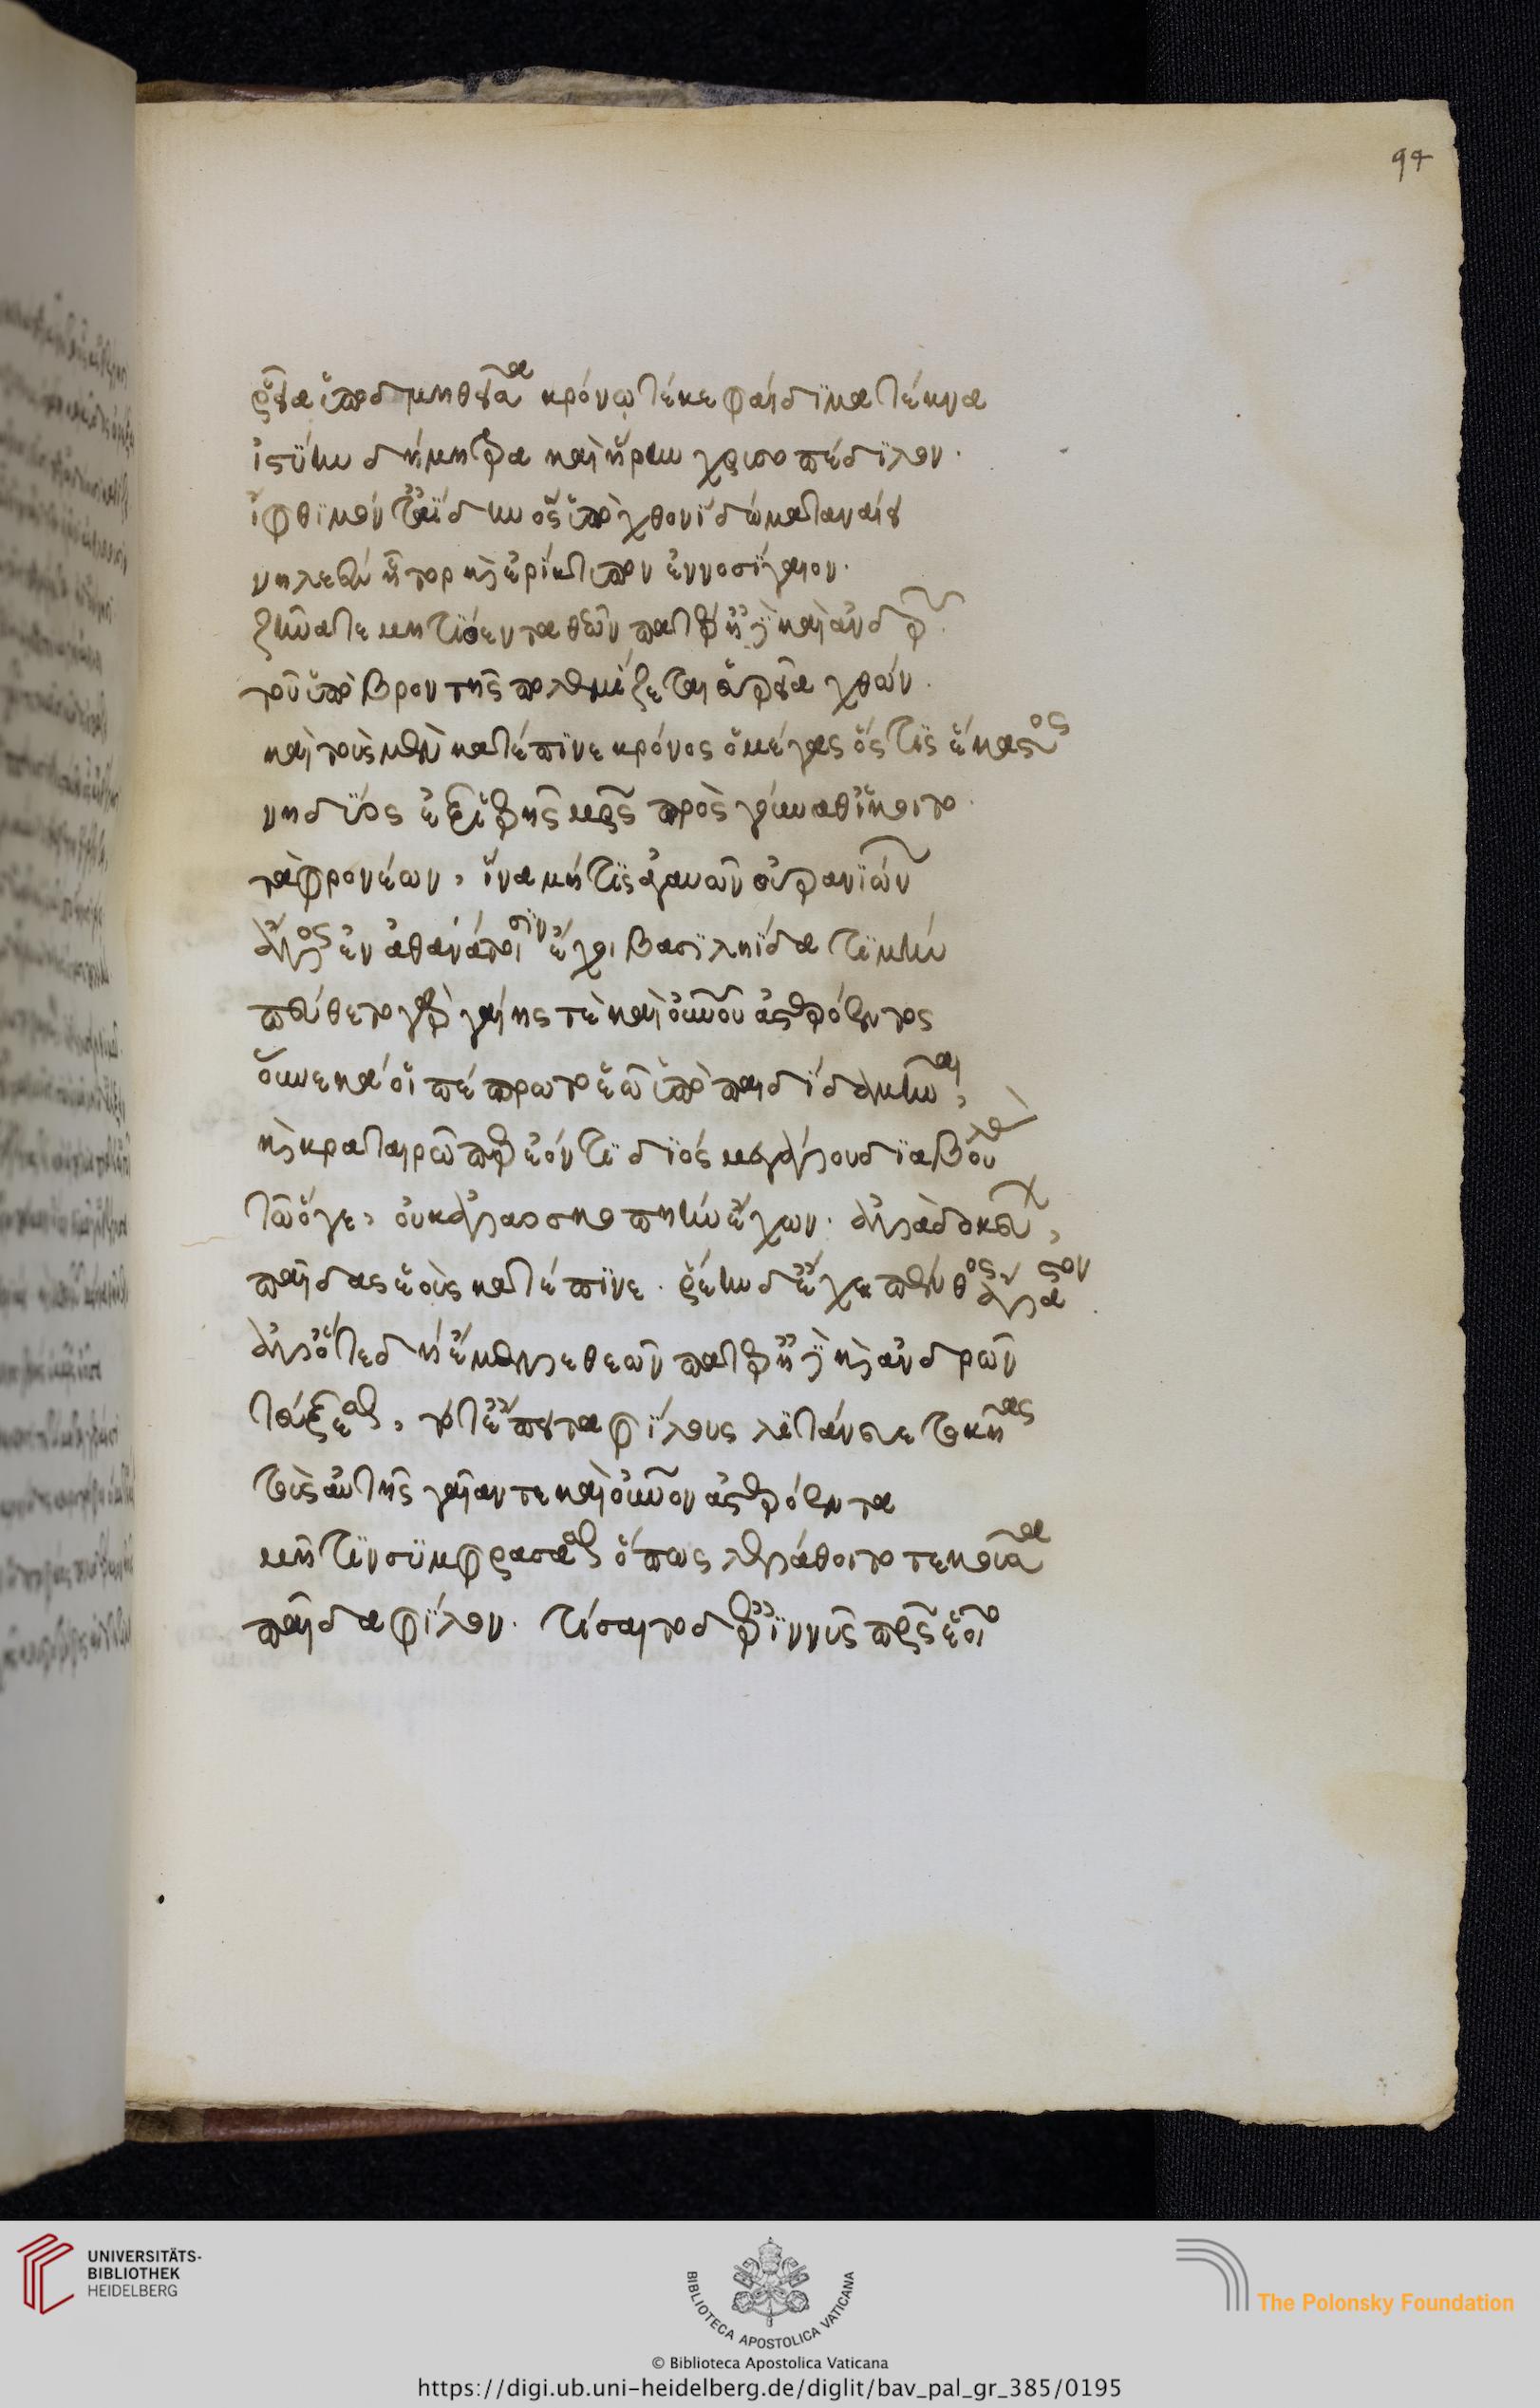 94
ῥεῖα ὑποδμηθεῖσα κρόνῳ τέκε φαίδιμα τέκνα
ἱστίην δήμητρα καὶ ἥρην χρυσοπέδιλον.
ἴφθιμόν τ' ἀΐδην ὃς ὑπὸ χθονὶ δώματα ναίει
νηλεὲς ἦτορ κ̀ ἐρίκτυπον ἐννοσίγαιον.
ζῆνά τε μητιόεντα θεῶν πατέρ' ἠδὲ καὶ ἀνδρῶν.
τοῦ ὑπὸ βροντῆς πελεμίζεται εὐρεῖα χθών.
καὶ τοὺς μὲν κατέπινε κρόνος ὁ μέγας ὅς τις ἕκαστος
νηδύος ἐξ ἱερῆς μητρὸς πρὸς γούναθ' ἵκοιτο.
τὰ φρονέων, ἵνα μή τις ἀγαυῶν οὐρανιώνων
ἄλλος ἐν ἀθανάτοισιν ἔχοι βασιληίδα τιμήν
πεύθετο γὰρ γαίης τὲ καὶ οὐρανοῦ ἀστερόεντος
οὕνεκά οἱ πέπρωτο ἑῷ ὑπὸ παιδὶ δαμῆναι,
κ̀ κρατερῷ περ ἐόντι διὸς μεγάλου διὰ βουλὰς
τῷ ὅγε, οὐκ ἀλαοσκοπιὴν ἔχων. ἀλλὰ δοκεύων,
παῖδας ἑοὺς κατέπινε. ῥέην δ' ἔχε πένθος ἄλαστον.
ἀλλ' ὅτε δὴ ἔμελλε θεῶν πατέρ' ἠδὲ κ̀ ἀνδρῶν
τέξεσθαι, τότ' ἔπειτα φίλους λιτάνευε τοκῆας
τοὺς αὐτῆς γαῖαν τε καὶ οὐρανὸν ἀστερόεντα
μῆτιν συμφράσασθαι ὅπως λελάθοιτο τεκοῦσα
παῖδα φίλον. τίσαιτο δ' ἐριννῦς πατρὸς ἑοῖο
UNIVERSITÄTS-
BIBLIOTHEK
HEIDELBERG
BIBLIOTECA APOSTOLICA VATICANA
The Polonsky Foundation
© Biblioteca Apostolica Vaticana
https://digi.ub.uni-heidelberg.de/diglit/bav_pal_gr_385/0195